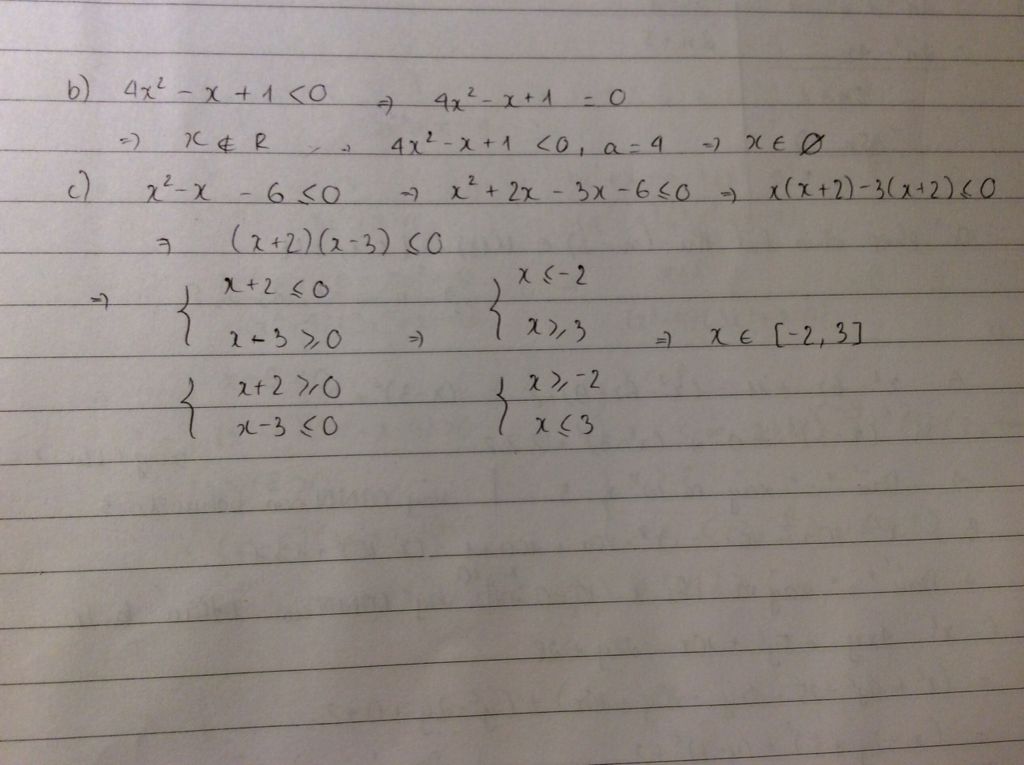 b) 4x² - x + 1 < 0 => 4x² - x + 1 = 0
=> x ∉ R => 4x² - x + 1 < 0, a = 4 => x ∈ ∅
c) x² - x - 6 ≤ 0 => x² + 2x - 3x - 6 ≤ 0 => x(x+2) - 3(x+2) ≤ 0
=> (x+2)(x-3) ≤ 0
=> { x + 2 ≤ 0 { x ≤ -2
x - 3 ≥ 0 => x ≥ 3 => x ∈ [-2, 3]
{ x + 2 ≥ 0 { x ≥ -2
x - 3 ≤ 0 x ≤ 3